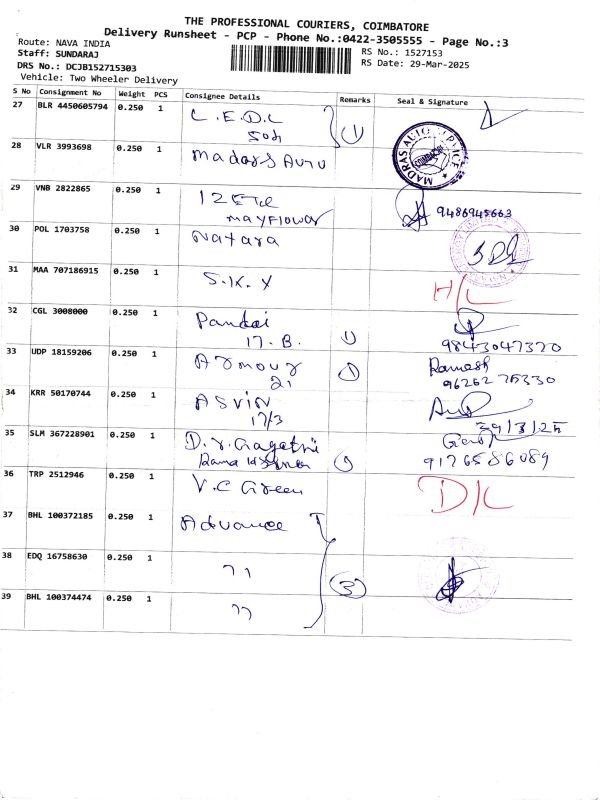 THE PROFESSIONAL COURIERS, COIMBATORE
Delivery Runsheet - PCP - Phone No.:0422-3505555 - Page No.:3
Route: NAVA INDIA
Staff: SUNDARAJ
RS No.: 1527153
DRS No.: DCJB152715303
RS Date: 29-Mar-2025
Vehicle: Two Wheeler Delivery
S No Consignment No Weight PCS Consignee Details Remarks Seal & Signature
27 BLR 4450605794 0.250 1 L.E.D.L
1
28 VLR 3993698 0.250 1 Madars Auto
MADRAS AUTO SERVICE
COIMBATORE
29 VNB 2822865 0.250 1 125
Mayflower
9486945663
30 POL 1703758 0.250 1 Natara
31 MAA 707186915 0.250 1 S.K.Y
H/L
32 CGL 3008000 0.250 1 Pandai
17.B. 1
9843047320
33 UDP 18159206 0.250 1 Armour
21 1
Ramesh
9626275330
34 KRR 50170744 0.250 1 ASVIN
17/3
29/3/25
35 SLM 367228901 0.250 1 D.r.Gayathri
1
9176586089
36 TRP 2512946 0.250 1 V.C Green
D/L
37 BHL 100372185 0.250 1 Advance
38 EDQ 16758630 0.250 1 11
3
39 BHL 100374474 0.250 1 11